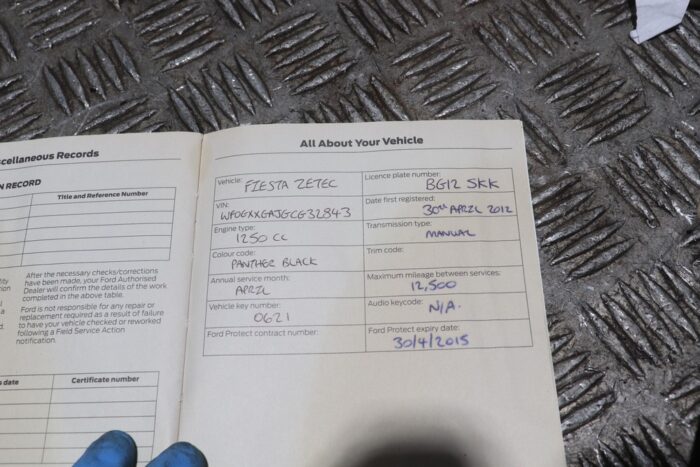 scellaneous Records
N RECORD
Title and Reference Number
After the necessary checks/corrections
have been made, your Ford Authorised
Dealer will confirm the details of the work
completed in the above table.
Ford is not responsible for any repair or
replacement required as a result of failure
to have your vehicle checked or reworked
following a Field Service Action
notification.
s date
Certificate number
All About Your Vehicle
Vehicle: FIESTA ZETEC
Licence plate number: BG12 SKK
VIN: WF0GXXGAJGCG32843
Date first registered: 30th APRIL 2012
Engine type: 1250 CC
Transmission type: MANUAL
Colour code: PANTHER BLACK
Trim code:
Annual service month: APRIL
Maximum mileage between services: 12,500
Vehicle key number: 0621
Audio keycode: N/A.
Ford Protect contract number:
Ford Protect expiry date: 30/4/2015